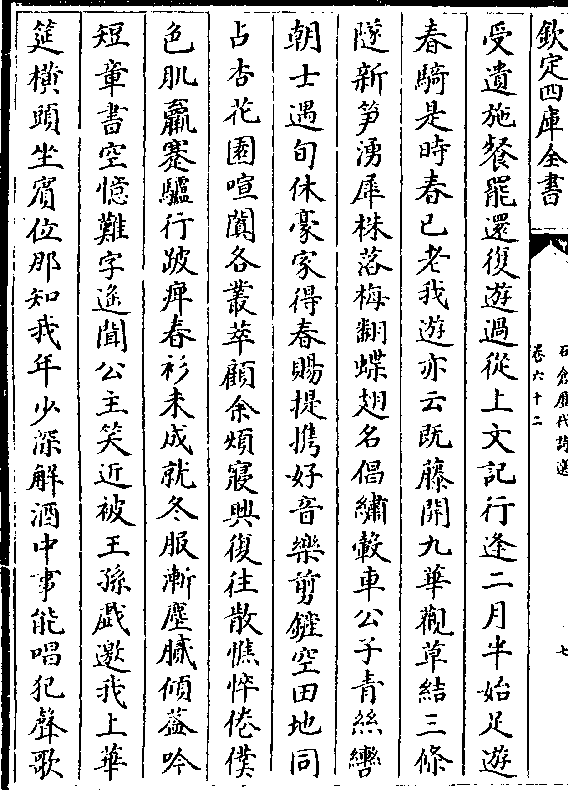 欽定四庫全書
石倉歷代詩選
卷六十二
七
受遺施餐罷還復遊過從上文記行逢二月半始足遊
春騎是時春已老我遊亦云既藤開九華觀草結三條
隧新笋湧犀株落梅翻蝶翅名倡繡轂車公子青絲轡
朝士遇旬休豪家得春賜提携好音樂剪鏟空田地同
占杏花園喧闐各叢萃顧余煩寢興復往散憔悴倦僕
色肌羸蹇驢行跛痺春衫未成就冬服漸塵膩傾葢吟
短章書空憶難字遥聞公主笑近被王孫戯邀我上華
筵橫頭坐賓位那知我年少深解酒中事能唱犯聲歌